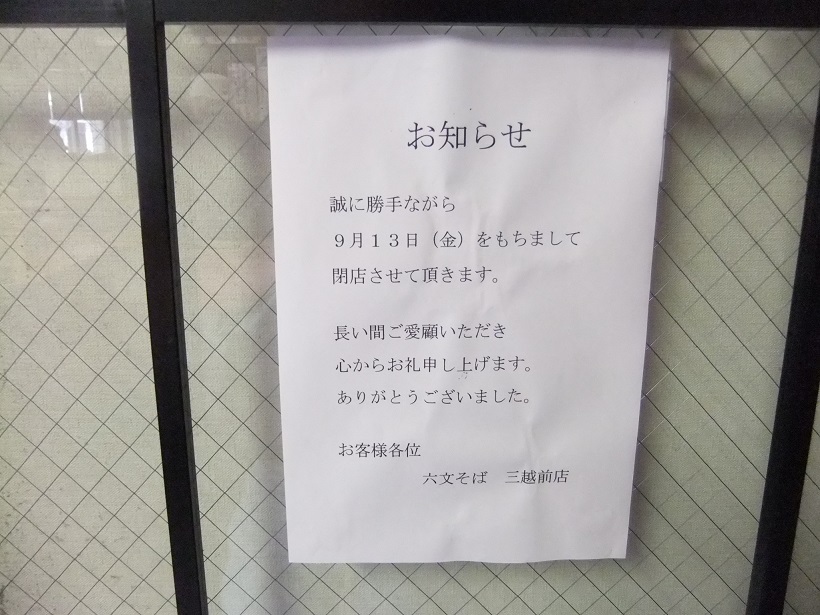 お知らせ
誠に勝手ながら
９月１３日（金）をもちまして
閉店させて頂きます。
長い間ご愛顧いただき
心からお礼申し上げます。
ありがとうございました。
お客様各位
六文そば　三越前店